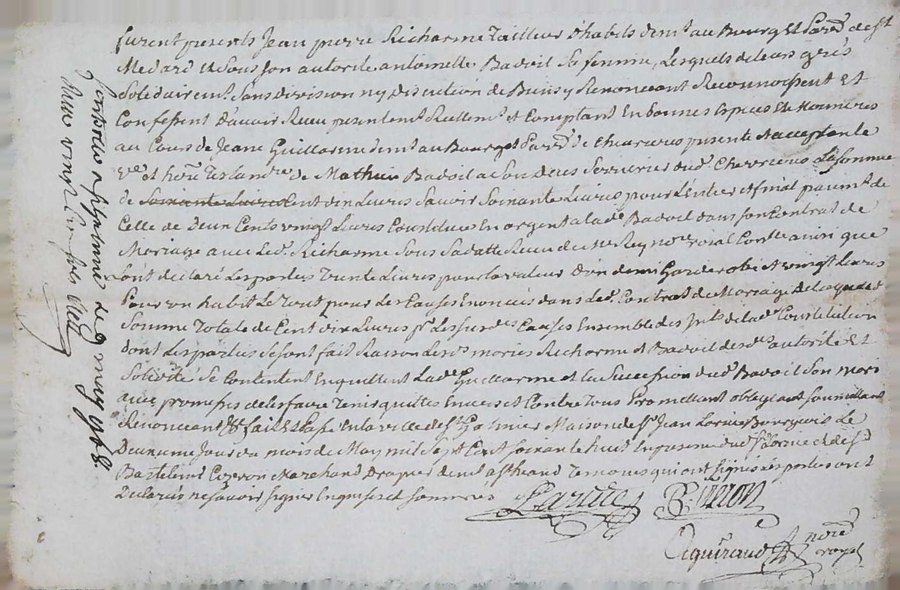 furent presents Jean pierre Richarme Tailleur d'habits demt au Bourg Et Parse de St
Medard Et sous son autorité antoinette Badoil sa femme, Lesquels de leurs grés
Solidairemt Sans division ny discution de Biens y Renonceant Reconnoissent Et
Confessent D'avoir Reçu presentemt Reellemt et Comptant En bonnes Espèces Et Monnoies
au Cours de Jeane Guillarme demt au Bourg et Parse de Chevrieres presente et acceptante
Ve et de Mathieu Badoil a son deces Serrurier dudt Chevrieres La somme
de soixante Livres Cent dix Livres Savoir Soixante Livres pour L'entier et final paiemt de
Celle de Deux Cents vingt Livres Constituée En argent a lade Badoil dans son Contrat de
Mariage avec Ledt Richarme Sous Sa datte Reçu de Me Rey nore roial Controllé ainsi que
ont declaré Les parties Trente Livres pour la valeur d'un demi Garderobe et vingt Livres
pour un habit Le Tout pour des Causes Enoncées dans Ledt Contrat de Mariage de Laquelle
Somme Totale de Cent dix Livres pr Les susdes Causes Ensemble des de lade Constitution
dont Les parties Se sont fait Raison Les mariés Richarme et Badoil de sde autorité Et
Solidité Se Contentent En quittent Lade Guillarme et la Succession dudt Badoil Son mari
avec promesses de les faire Tenir quittes Envers et Contre Tous Promettant obligeant Soumettant
Renonceant fait Et Passé En la ville de St Galmier Maison de Sr Jean Larue Bourgeois Le
Deuxieme Jour du mois de May mil Sept Cent Soixante huit En presence dudt Sr Larue et de Sr
Bartelemi Marchand Drapier demt a St Temoins qui ont Signé Les parties ont
Declarés ne Savoir Signer Enquises et Sommées
Larue
nore
royal
Controllé a St Galmier le 9 may 1768
Reçu